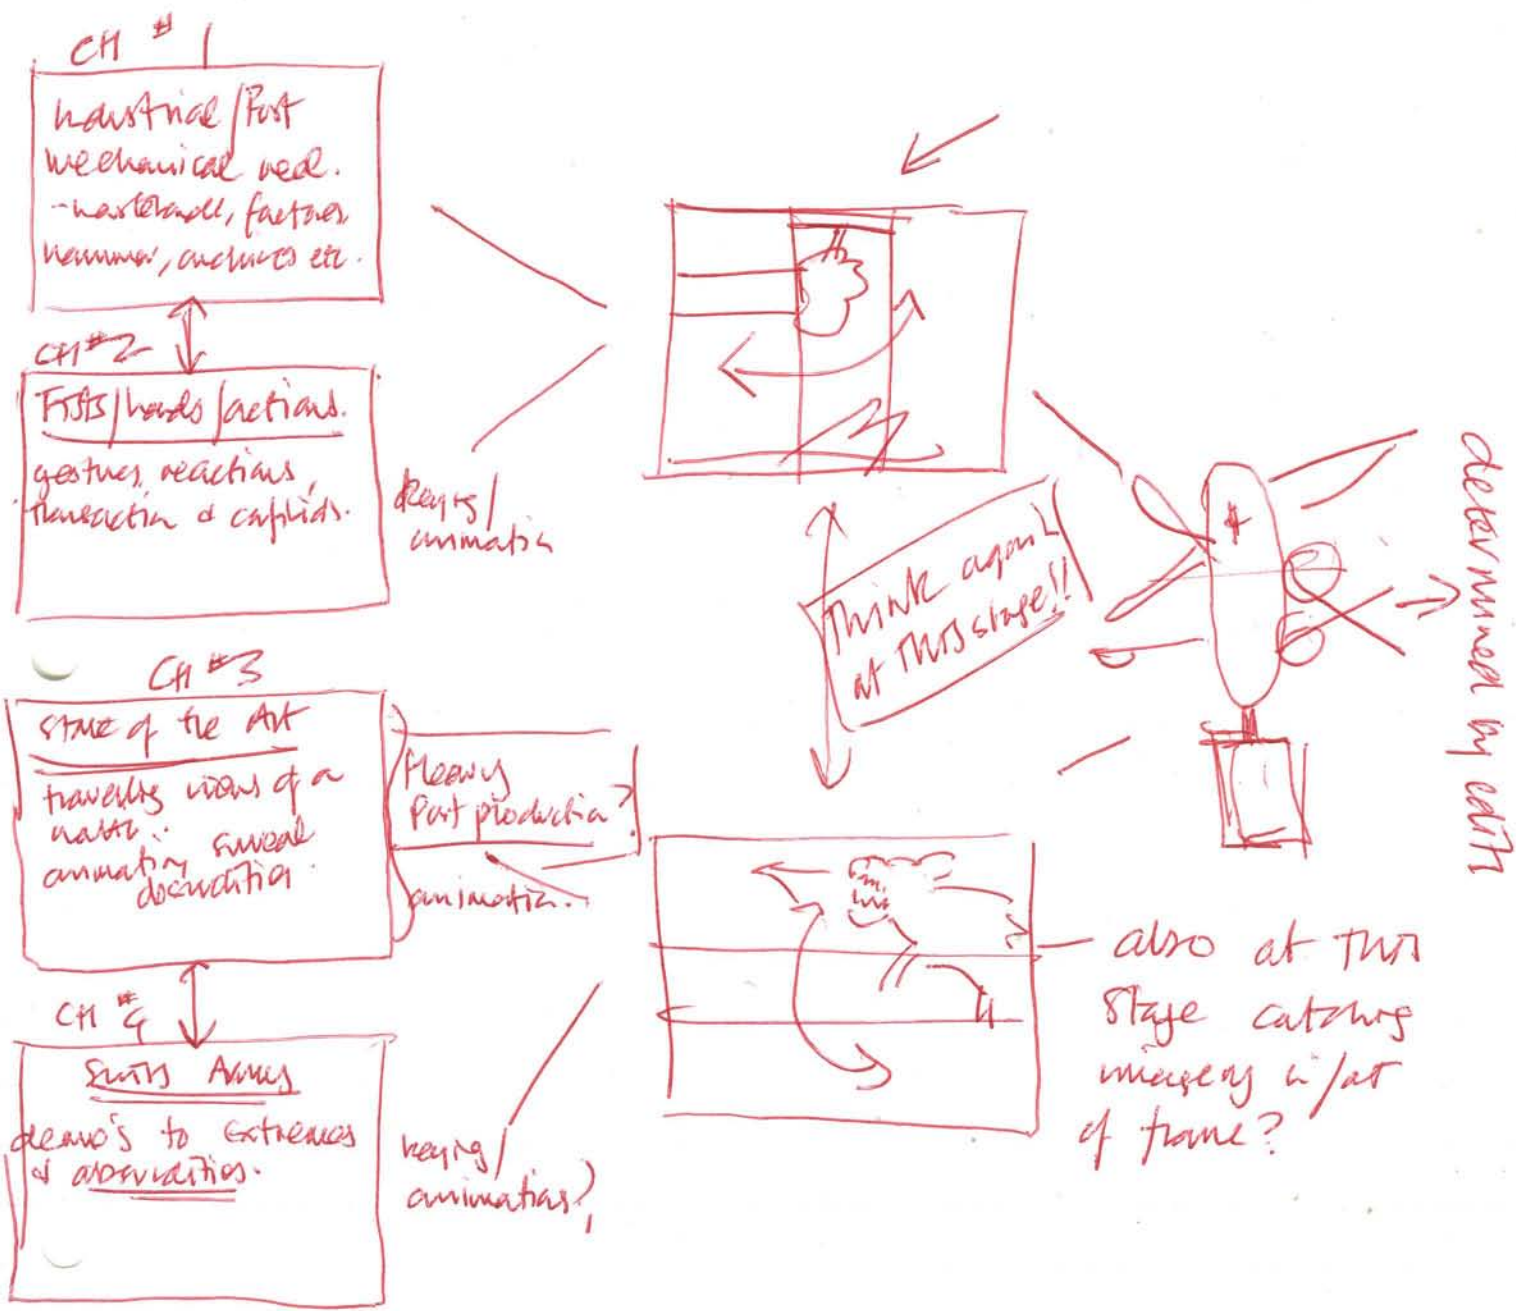 CH # 1
Industrial / Post
Mechanical
factories,
hammer, etc.
CH # 2
Fists / hands / actions.
gestures, reactions,
transaction &
keying /
animation
CH # 3
State of the Art
travelling views of a
animation, surreal
Heavy
Post production?
animation.
CH # 4
Swiss Army
demo's to extremes
& absurdities.
keying /
animation?
Think again
at this stage!!
determined by edits
also at this
stage catching
imagery in / out
of frame?